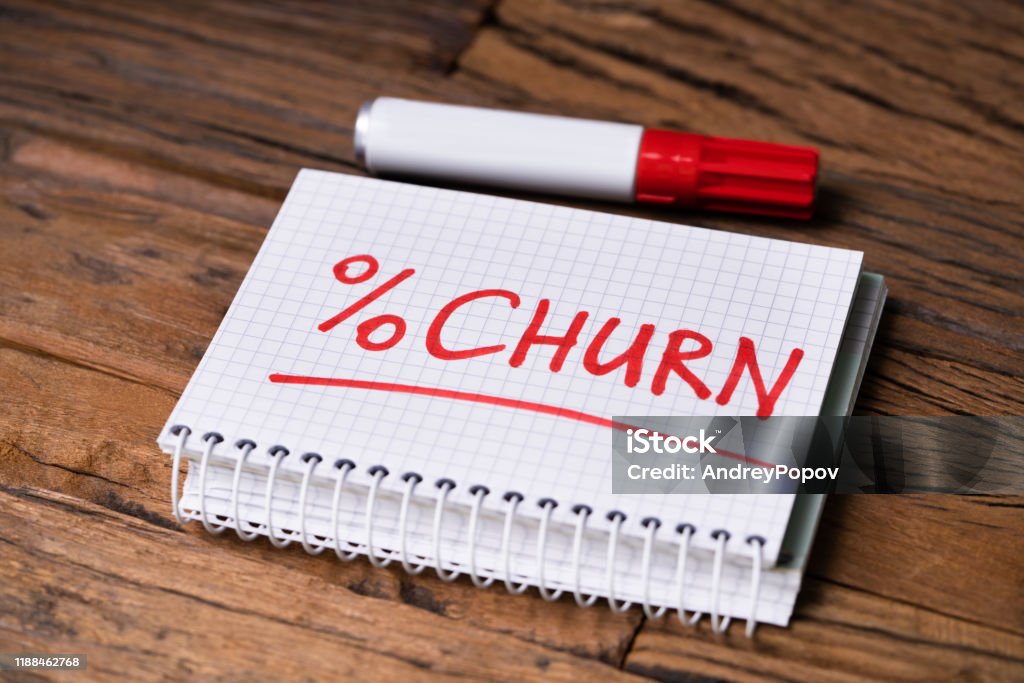 %CHURN
iStock™
Credit: AndreyPopov
1188462768